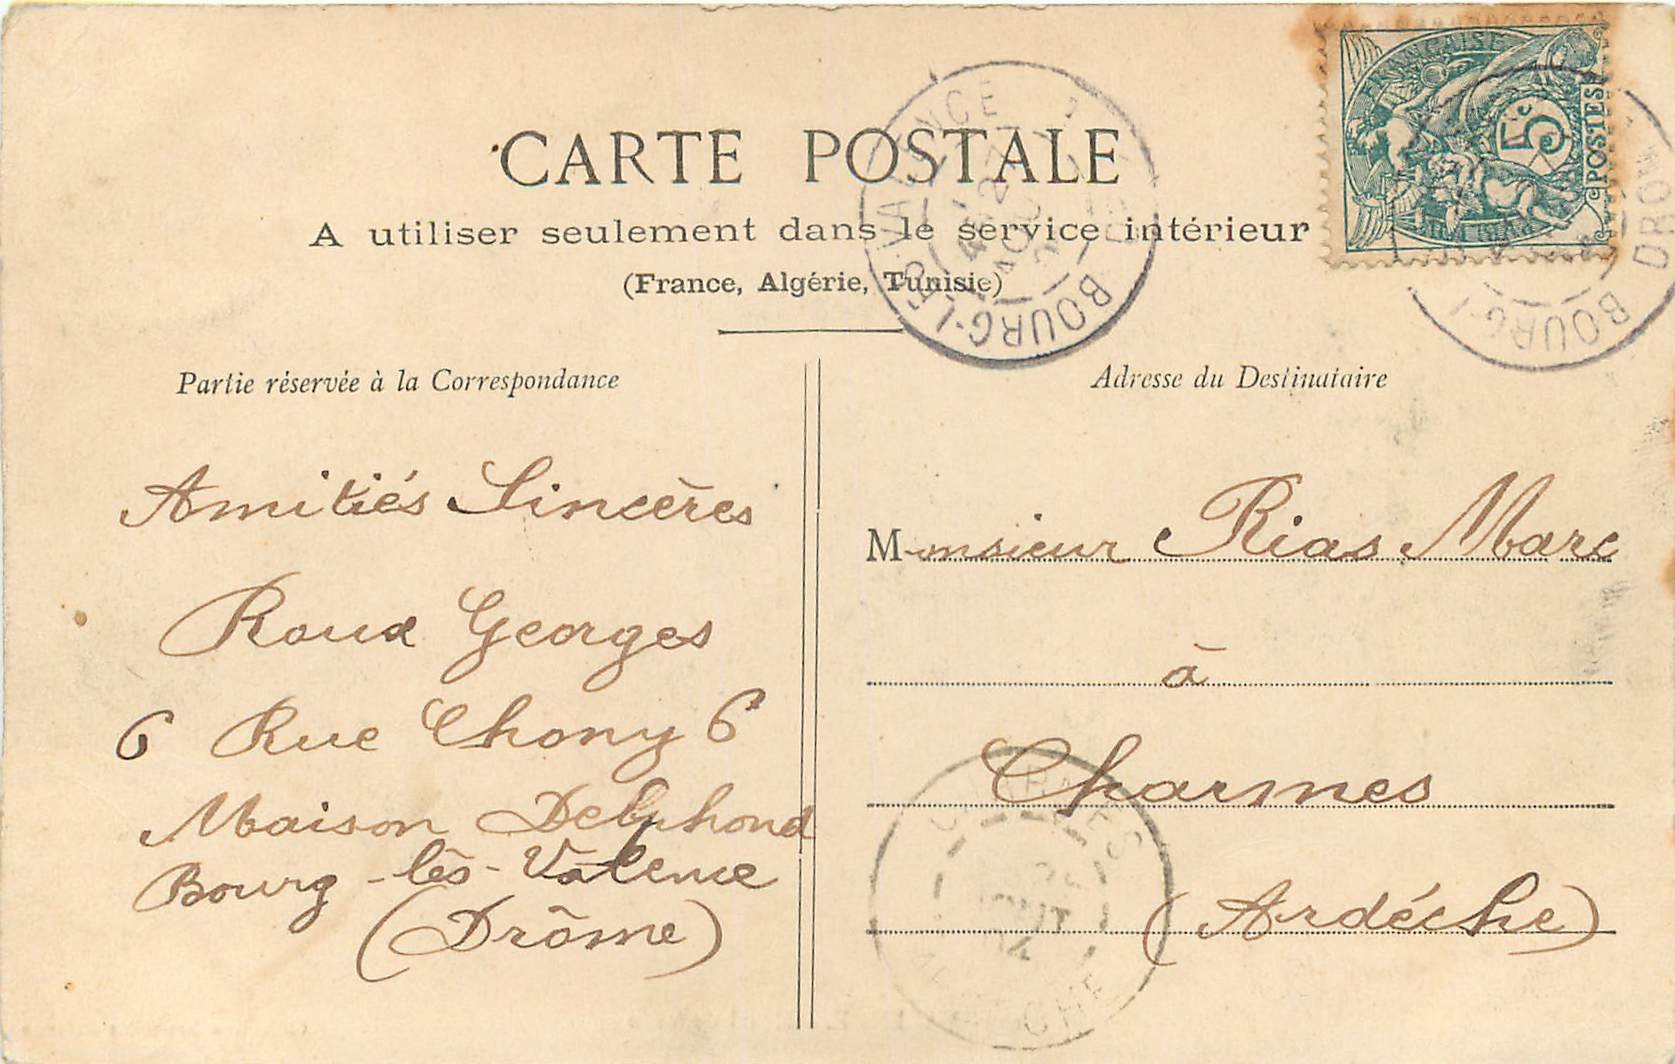 CARTE POSTALE
A utiliser seulement dans le service intérieur
(France, Algérie, Tunisie)
FRANÇAISE
5c
POSTES
BOURG-LES-VALENCE
BOURG-L
DROM
Partie réservée à la Correspondance
Amitiés Sincères
Roux Georges
6 Rue Chony 6
Maison Delphond
Bourg-lès-Valence
(Drôme)
Adresse du Destinataire
Monsieur Rias Marc
à
Charmes
(Ardèche)
CHARMES
AOUT
04
ARDECHE